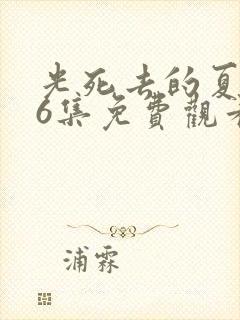 光死去的夏
6集免費觀看
浦霖